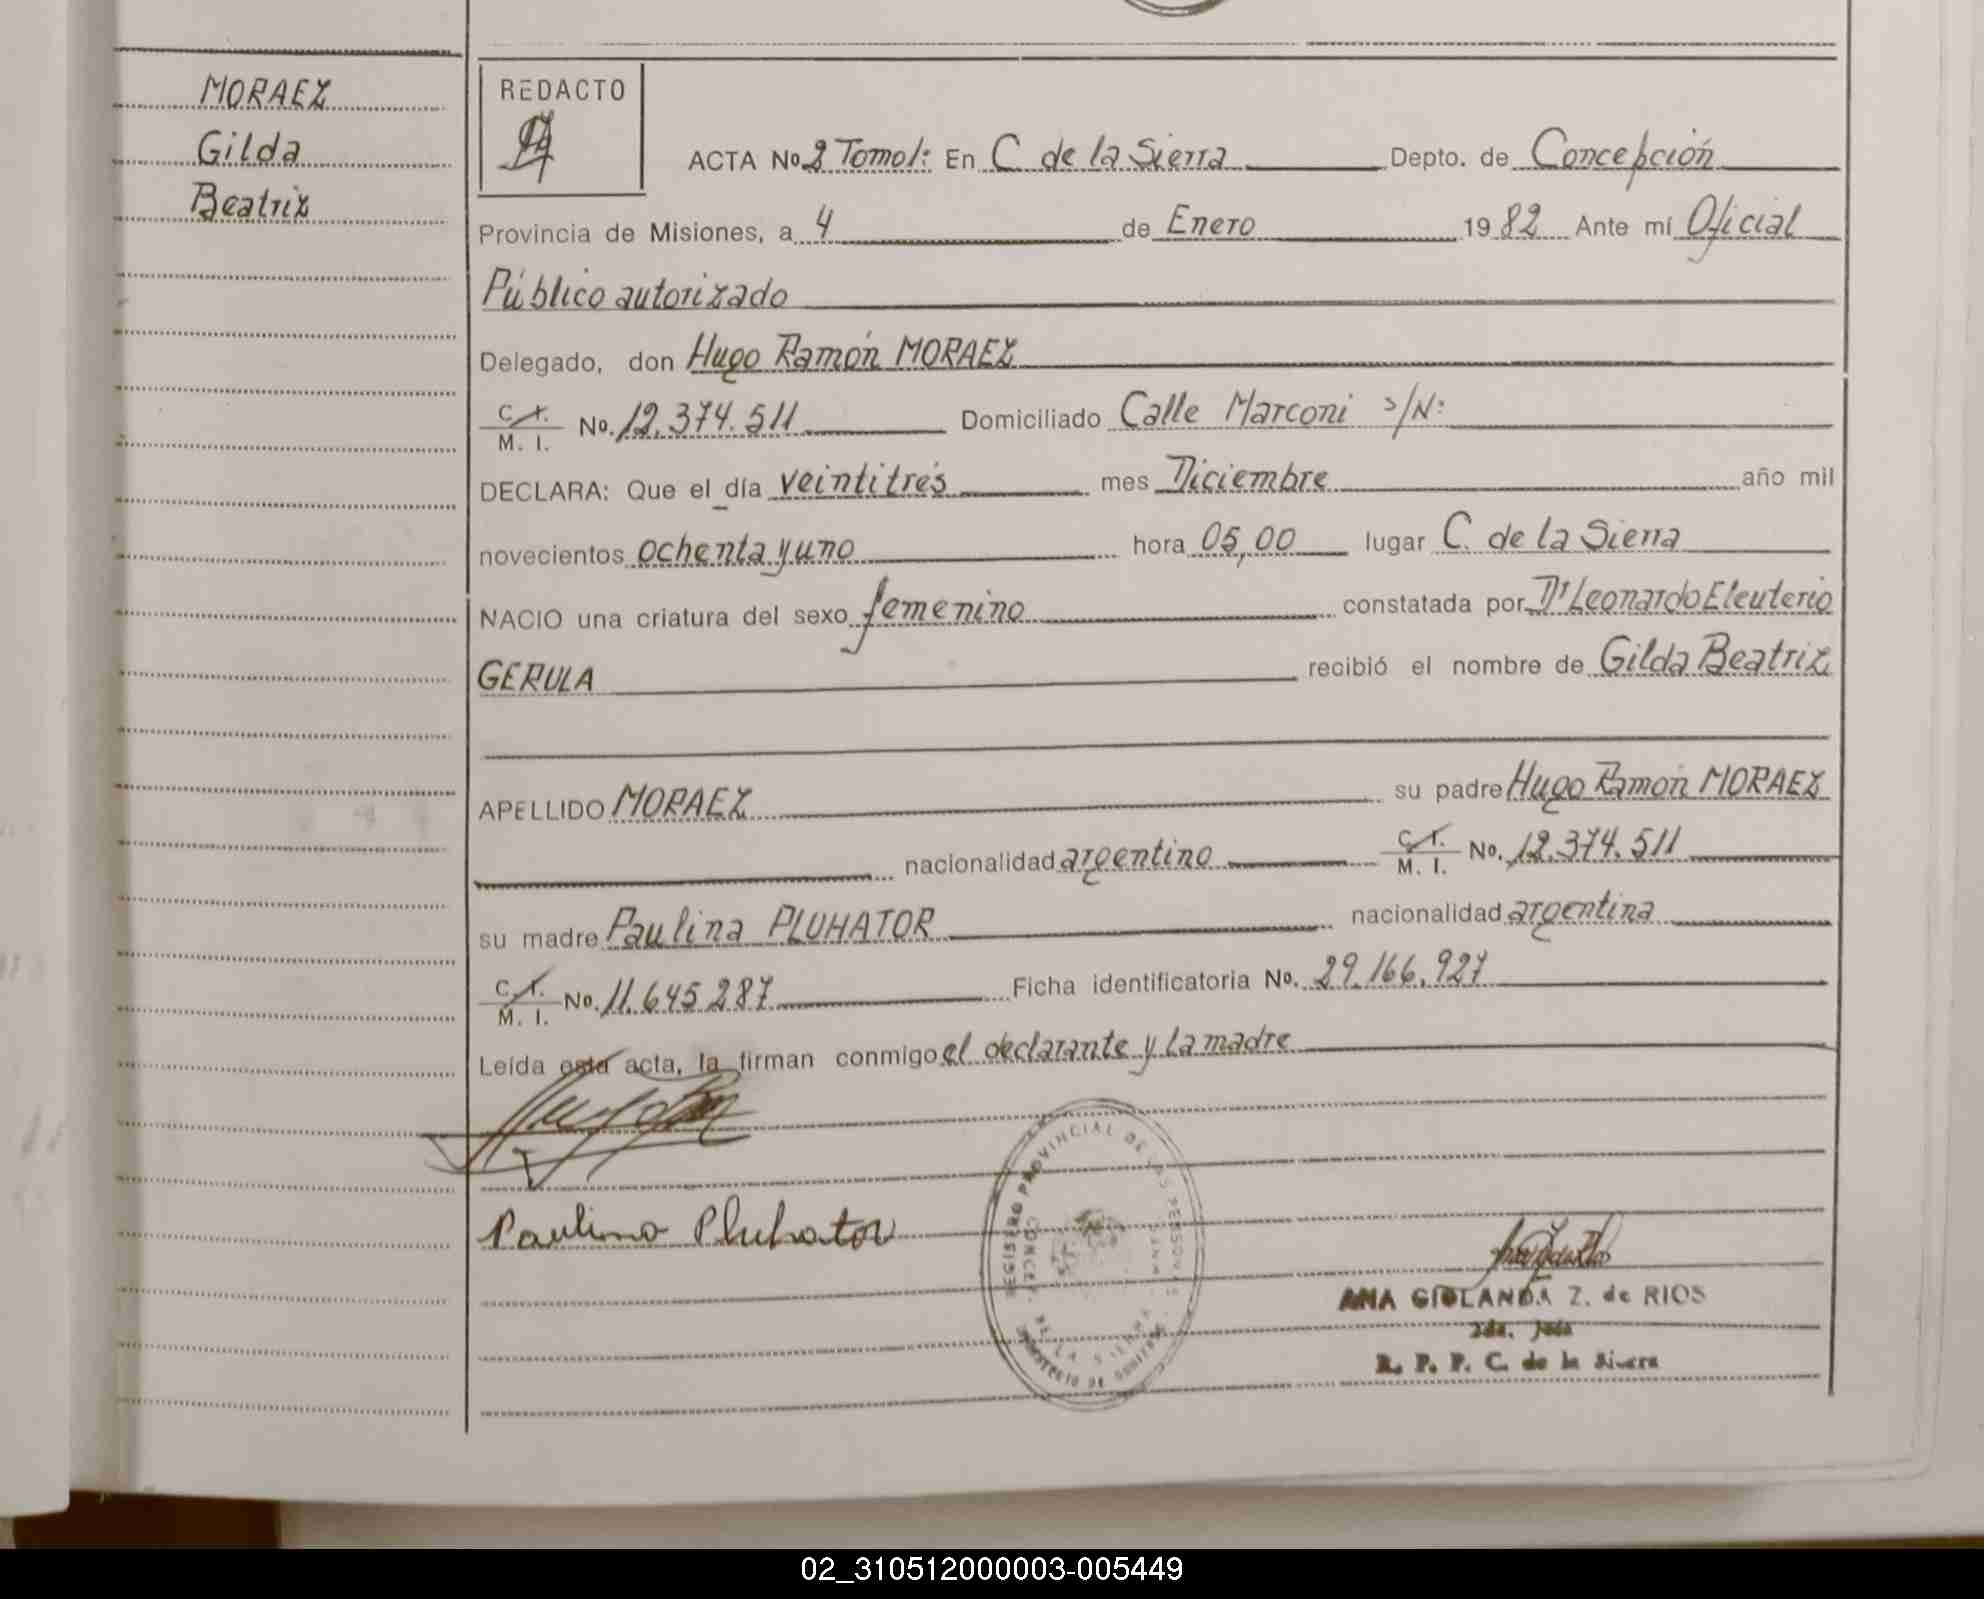 MORAEZ
Gilda
Beatriz
REDACTO
ACTA No 2 Tomo 1: En C. de la Sierra Depto. de Concepción
Provincia de Misiones, a 4 de Enero 1982 Ante mí Oficial
Público autorizado
Delegado, don Hugo Ramón MORAEZ
C. I. / M. I. No. 12.374.511 Domiciliado Calle Marconi s/N:
DECLARA: Que el día veintitrés mes Diciembre año mil
novecientos ochenta y uno hora 05,00 lugar C. de la Sierra
NACIO una criatura del sexo femenino constatada por Dr Leonardo Eleuterio
GERULA recibió el nombre de Gilda Beatriz
APELLIDO MORAEZ su padre Hugo Ramón MORAEZ
nacionalidad argentino C. I. / M. I. No. 12.374.511
su madre Paulina PLUHATOR nacionalidad argentina
C. I. / M. I. No. 11.645.287 Ficha identificatoria No. 29.166.927
Leída esta acta, la firman conmigo el declarante y la madre
Paulina Pluhator
REGISTRO PROVINCIAL DE LAS PERSONAS
CONCEP. DE LA SIERRA
MINISTERIO DE GOBIERNO
ANA GIOLANDA Z. de RIOS
2da. Jefe
R. P. P. C. de la Sierra
02_310512000003-005449